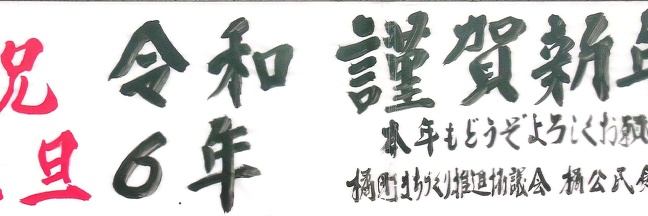 祝
旦
令和
6年
謹賀新年
本年もどうぞよろしくお願
橘町まちづくり推進協議会 橘公民館